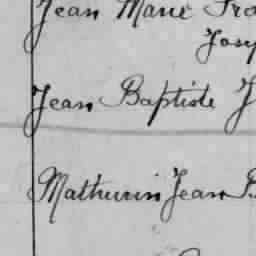 Jean Marie Fra
Josep
Jean Baptiste J
Mathurin Jean B